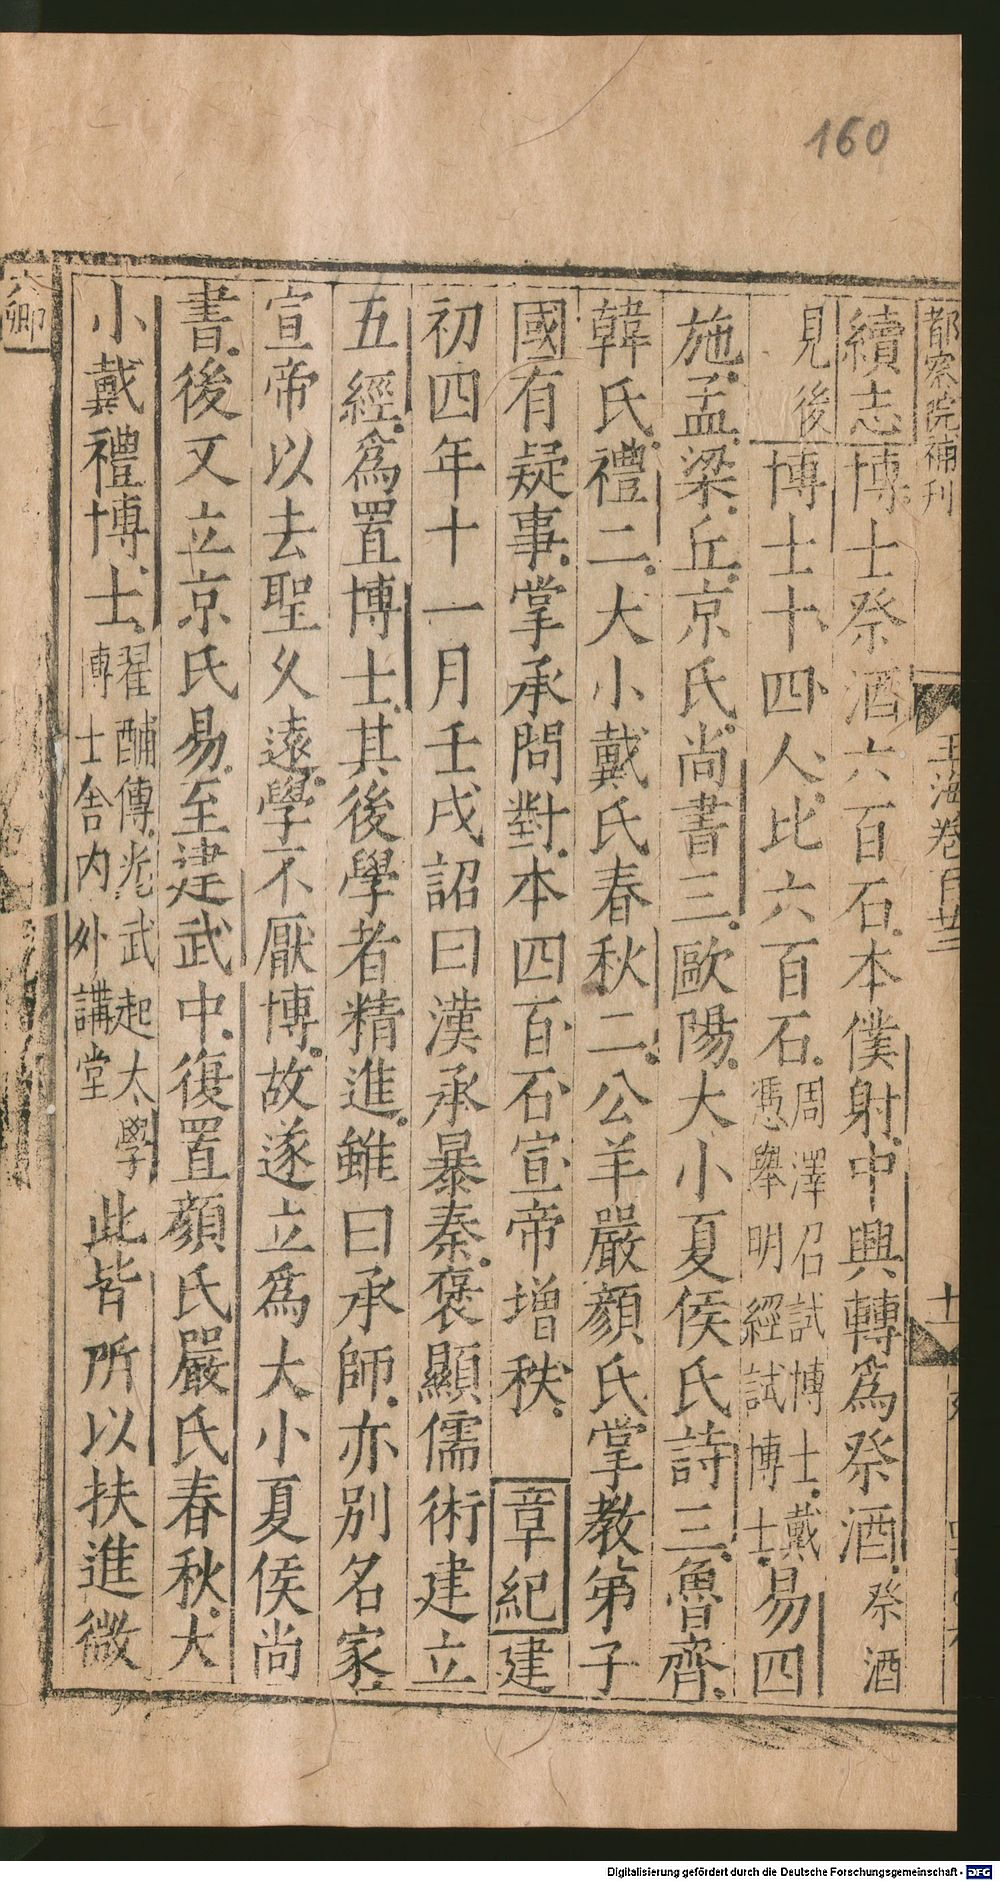 160
都察院補刊
玉海卷百廿三
十一
續志博士祭酒六百石本僕射中興轉爲祭酒祭酒
見後博士十四人比六百石周澤召試博士戴憑舉明經試博士易四
施孟梁丘京氏尚書三歐陽大小夏侯氏詩三魯齊
韓氏禮二大小戴氏春秋二公羊嚴顏氏掌教弟子
國有疑事掌承問對本四百石宣帝增秩章紀建
初四年十一月壬戌詔曰漢承暴秦褒顯儒術建立
五經爲置博士其後學者精進雖曰承師亦別名家
宣帝以去聖久遠學不厭博故遂立爲大小夏侯尚
書後又立京氏易至建武中復置顏氏嚴氏春秋大
小戴禮博士翟酺傳光武起太學博士舍內外講堂此皆所以扶進微
六卿
Digitalisierung gefördert durch die Deutsche Forschungsgemeinschaft - DFG